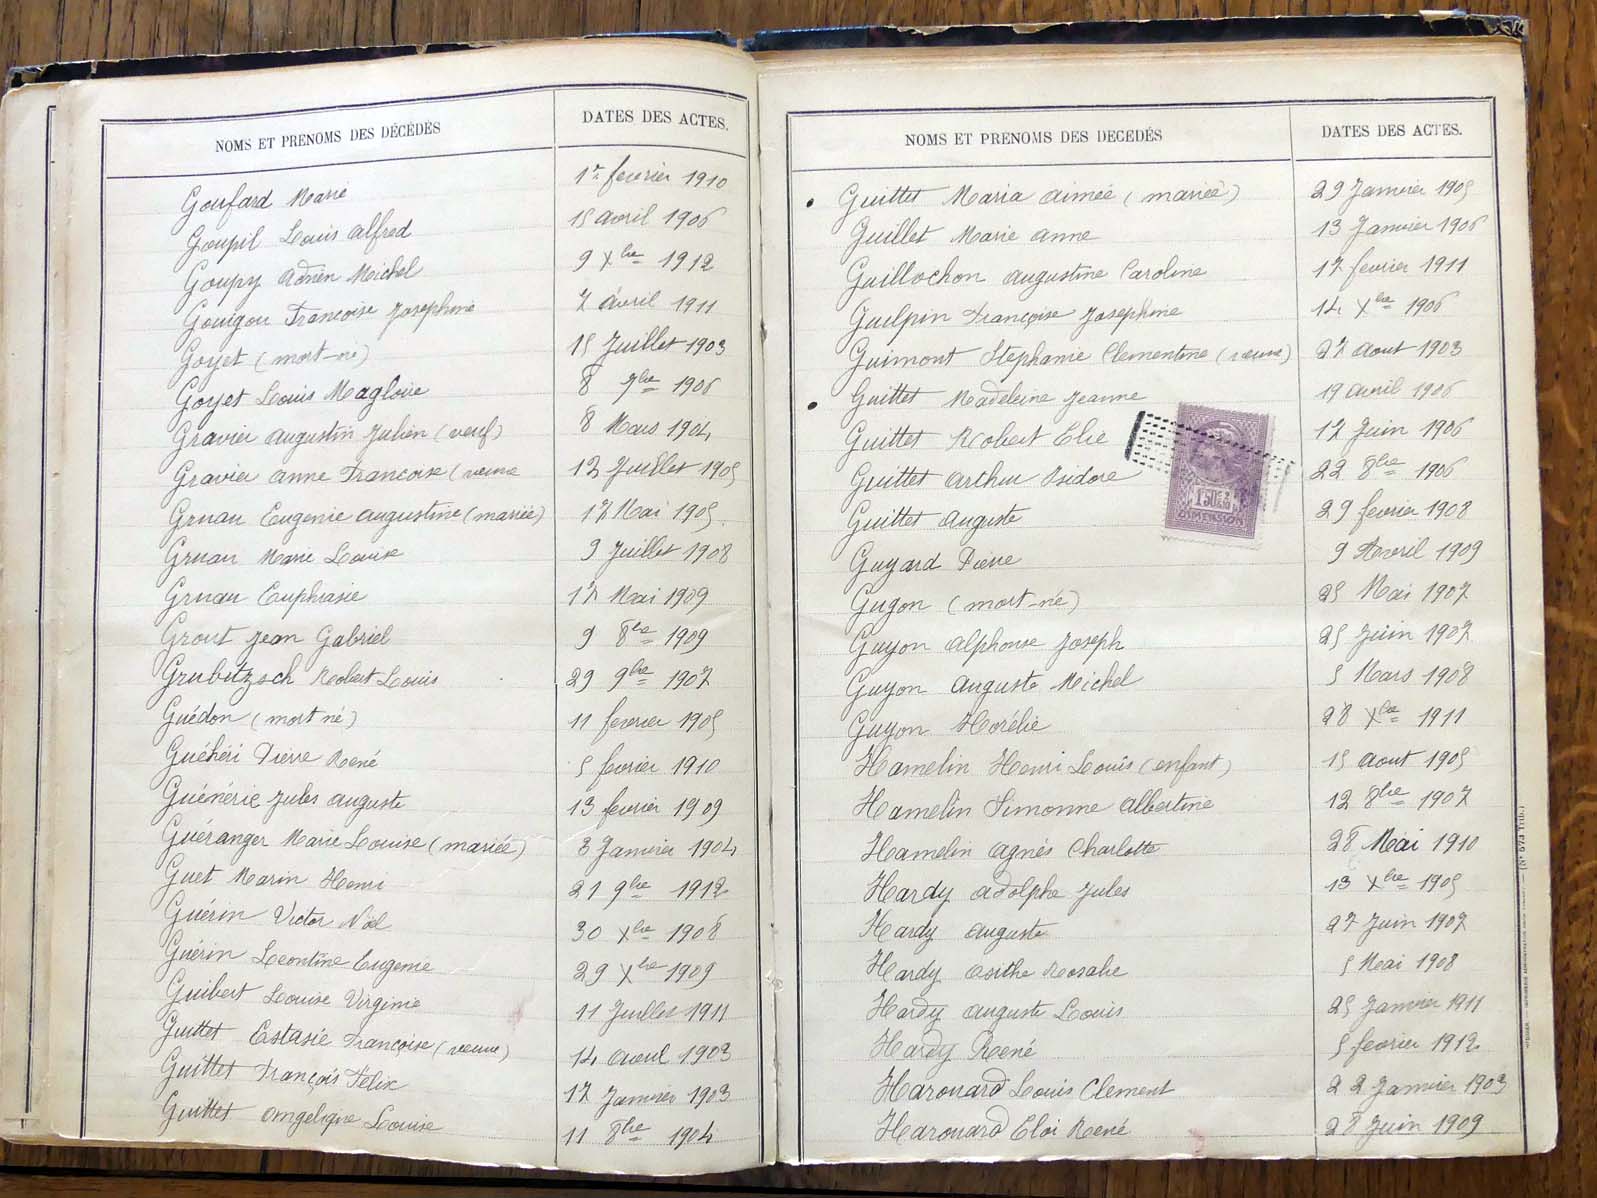 NOMS ET PRENOMS DES DÉCÉDÉS DATES DES ACTES.
Goufard Marie 1er fevrier 1910
Goupil Louis alfred 15 avril 1906
Goupy Adrien Michel 9 Xbre 1912
Gouigou Francoise Josephine 7 avril 1911
Goyet (mort-né) 15 Juillet 1903
Goyet Louis Magloire 8 7bre 1906
Gravier augustin Julien (veuf) 8 Mars 1904
Gravier anne Francoise (veuve 12 Juillet 1905
Gruau Eugenie augustine (mariée) 17 Mai 1905
Gruau Marie Louise 9 Juillet 1908
Gruau Euphrasie 17 Mai 1909
Grout Jean Gabriel 9 8bre 1909
Grubitzsch Robert Louis 29 9bre 1907
Guédon (mort né) 11 fevrier 1905
Guéhéri Pierre René 5 fevrier 1910
Guénérie Jules auguste 13 fevrier 1909
Guéranger Marie Louise (mariée) 3 Janvier 1904
Guet Marin Henri 21 9bre 1912
Guérin Victor Noël 30 Xbre 1908
Guérin Leontine Eugenie 29 Xbre 1909
Guibert Louise Virginie 11 Juillet 1911
Guittet Estasie Francoise (veuve) 14 avril 1903
Guittet François Félix 17 Janvier 1903
Guittet angelique Louise 11 8bre 1904
NOMS ET PRENOMS DES DECEDÉS DATES DES ACTES.
Guittet Maria aimée (mariée) 29 Janvier 1905
Guillet Marie anne 13 Janvier 1906
Guillochon augustine Caroline 17 fevrier 1911
Guilpin Françoise Josephine 14 Xbre 1906
Guimont Stephanie Clementine (veuve) 27 aout 1903
Guittet Madeleine Jeanne 19 avril 1906
Guittet Robert Elie 17 Juin 1906
Guittet Arthur Isidore 22 8bre 1906
Guittet auguste 29 fevrier 1908
Guyard Pierre 9 Avril 1909
Guyon (mort-né) 25 Mai 1907
Guyon alphonse Joseph 25 Juin 1907
Guyon Auguste Michel 5 Mars 1908
Guyon Horélie 28 Xbre 1911
Hamelin Henri Louis (enfant) 15 aout 1905
Hamelin Simonne albertine 12 8bre 1907
Hamelin agnés Charlotte 28 Mai 1910
Hardy adolphe Jules 13 Xbre 1905
Hardy auguste 27 Juin 1907
Hardy Rosalie 5 Mai 1908
Hardy auguste Louis 25 Janvier 1911
Hardy René 5 fevrier 1912
Harouard Louis Clement 22 Janvier 1903
Harouard Eloi René 28 Juin 1909
DIMENSION